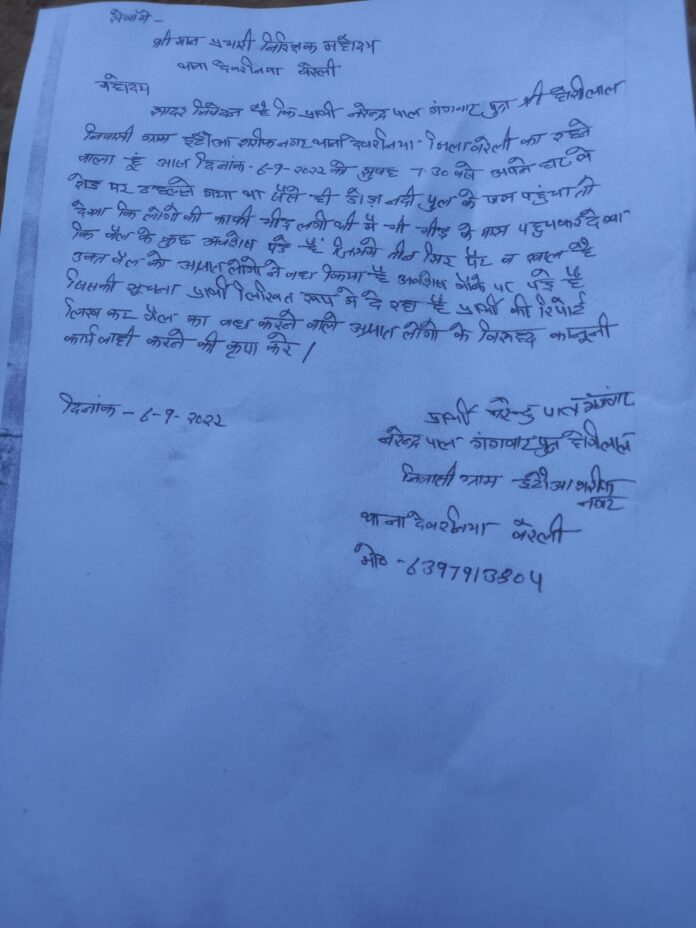 सेवामें -
श्री मान प्रभारी निरिक्षक महोदय
थाना देवरनिया बरेली
महोदय
सादर निवेदन है कि प्रार्थी नरेन्द्र पाल गंगवार पुत्र श्री होरीलाल
निवासी ग्राम इटौआ शरीफ नगर थाना देवरनिया - जिला बरेली का रहने
वाला हूं आज दिनांक - 6-9-2022 को सुबह 7.30 बजे अपने घर से
रोड पर टहलने गया था जैसे ही नदी पुल के पास पहुंचा तो
देखा कि लोगो की काफी भीड़ लगी थी मै भी भीड़ के पास पहुचकर देखा
कि बैल के कुछ अवशेष पड़े हैं जिसमे तीन सिर पैर व खाल है
उक्त बैल को अज्ञात लोगो ने वध किया है अवशेष मौके पर पड़े है
जिसकी सूचना प्रार्थी लिखित रूप मे दे रहा है प्रार्थी की रिपोर्ट
लिख कर बैल का वध करने वाले अज्ञात लोगो के विरूद्ध कानूनी
कार्यवाही करने की कृपा करे ।
दिनांक - 6-9-2022
प्रार्थी नरेन्द्र पाल गंगवार
नरेन्द्र पाल गंगवार पुत्र होरीलाल
निवासी ग्राम इटौआ शरीफ
नगर
थाना देवरनिया बरेली
मो० - 6397913804